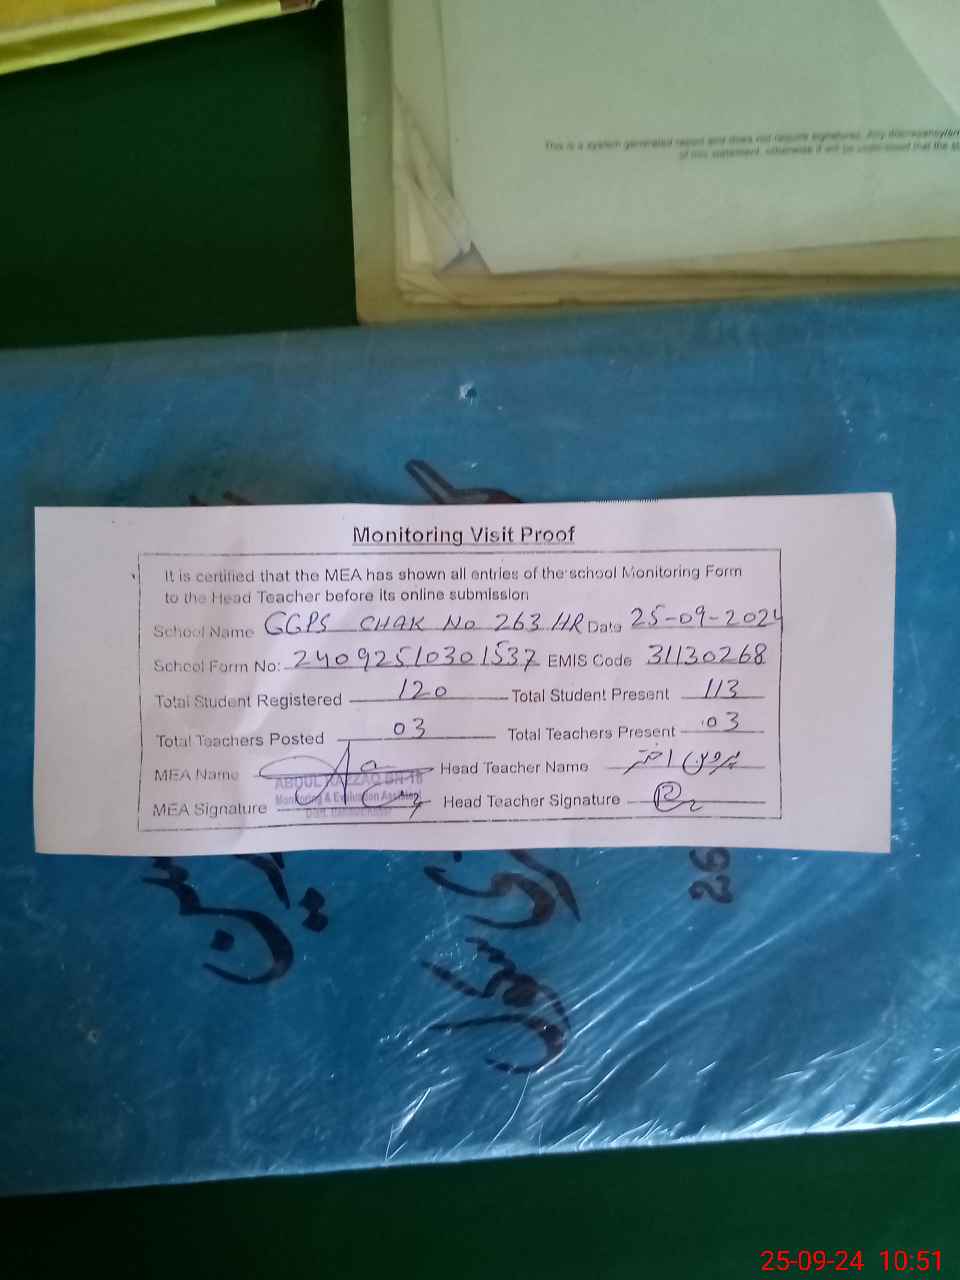 This is a system generated report and does not require signatures. Any discrepancy/err
of this statement, otherwise it will be understood that the st
Monitoring Visit Proof
It is certified that the MEA has shown all entries of the school Monitoring Form
to the Head Teacher before its online submission
School Name GGPS CHAK No 263 HR Date 25-09-2024
School Form No: 24092510301537 EMIS Code 31130268
Total Student Registered 120 Total Student Present 113
Total Teachers Posted 03 Total Teachers Present 03
MEA Name ABDUL RAZZAQ Head Teacher Name پروین اختر
Monitoring & Evaluation Assistant
MEA Signature Head Teacher Signature
25-09-24 10:51